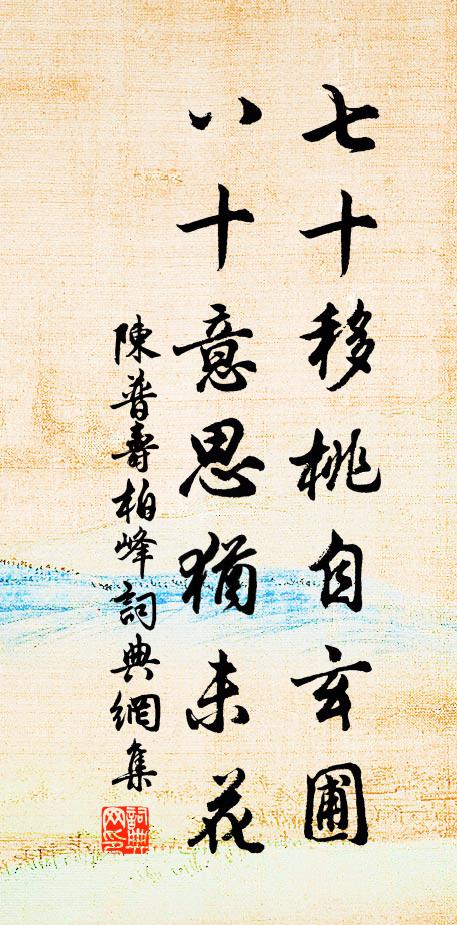 七十移桃自玄圃
八十意思猶未花
陳普壽柏峰詞典網集
詞典網印